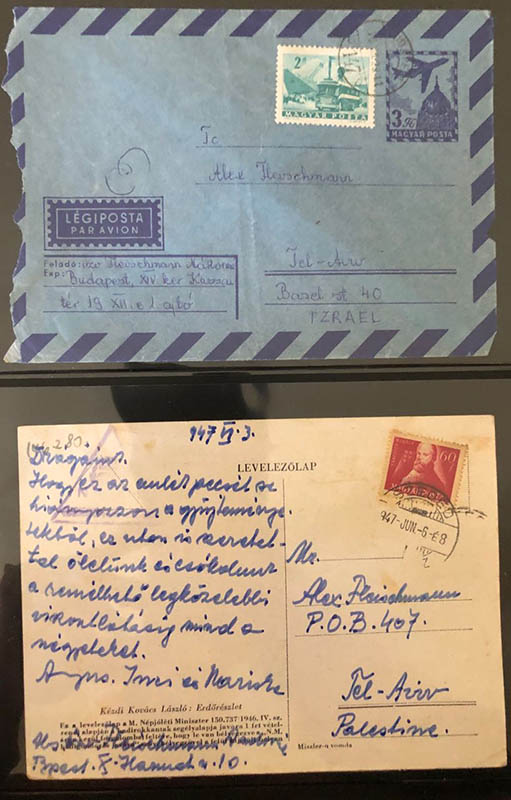 2 Ft
MAGYAR POSTA
3 Ft
MAGYAR POSTA
Tc
Alex Fleischmann
LÉGIPOSTA
PAR AVION
Feladó: Fleischmann
Exp: Budapest, XIV ker Kassai
tér 19 XII. e 1 ajtó
Tel-Aviv
Basel st 40
IZRAEL
947 VI. 3.
2.80.
LEVELEZŐLAP
Drágáim!
Hogy ez az emlék se
hiányozzon a gyűjteménye-
tekből, ez uton is szeretet-
tel ölelünk és csókolunk
a remélhető legközelebbi
viszontlátásig mind a
négyeteket.
Imi és Mariska
60
MAGYAR POSTA
947-JUN-6
Mr.
Alex Fleischmann
P.O.B. 407.
Tel-Aviv
Palestine.
Kézdi Kovács László: Erdőrészlet
Ez a levelezőlap a M. Népjóléti Miniszter 150.737/1946. IV. sz.
Bpest. X. u. 10.
Miszler-nyomda